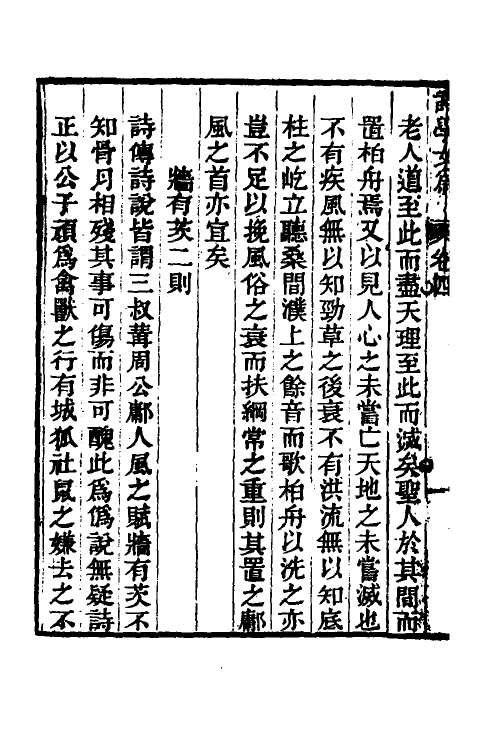 老人道至此而盡天理至此而滅矣聖人於其間而
置柏舟焉又以見人心之未嘗亡天地之未嘗滅也
不有疾風無以知勁草之後衰不有洪流無以知底
柱之屹立聽桑間濮上之餘音而歌柏舟以洗之亦
豈不足以挽風俗之衰而扶綱常之重則其置之鄘
風之首亦宜矣
牆有茨二則
詩傳詩說皆謂三叔冓周公鄘人風之賦牆有茨不
知骨月相殘其事可傷而非可醜此爲僞說無疑詩
正以公子頑爲禽獸之行有城狐社鼠之嫌去之不